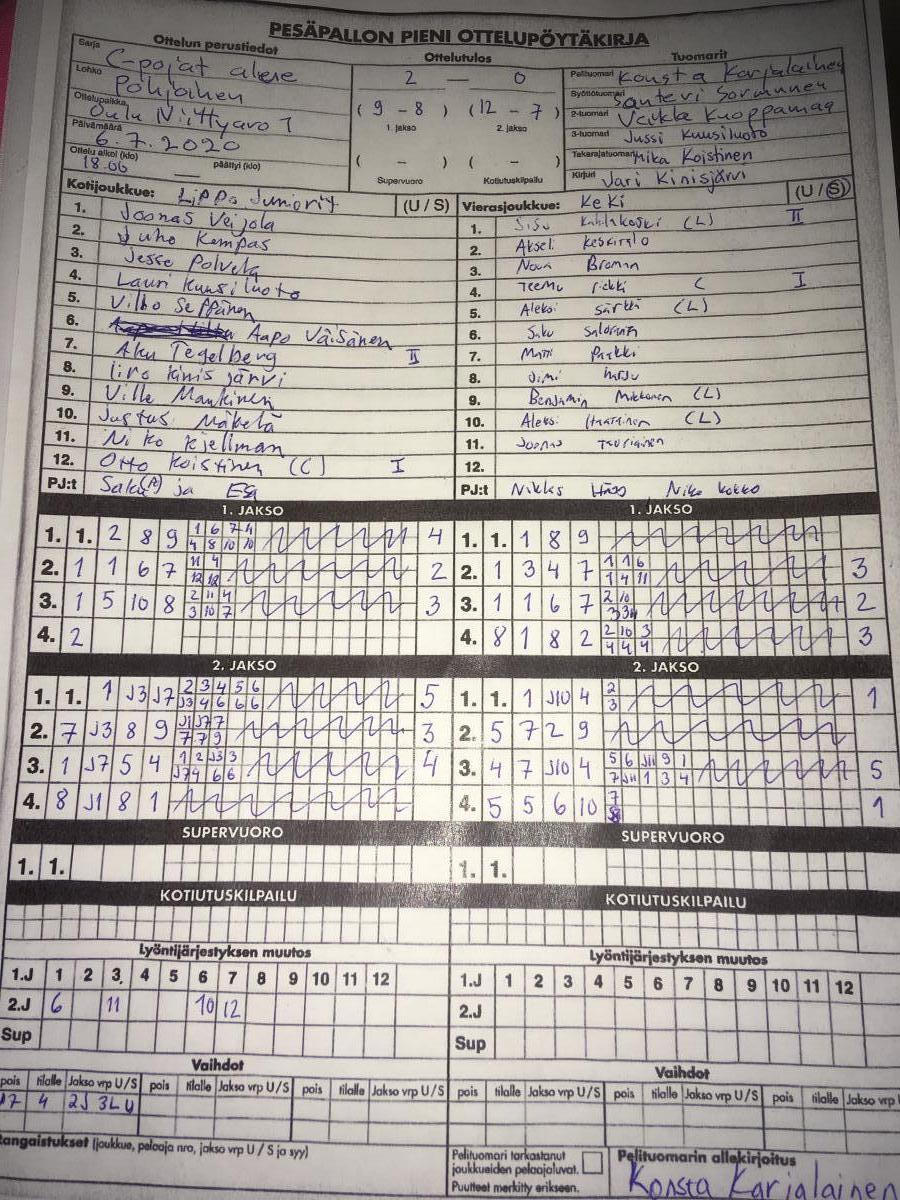 PESÄPALLON PIENI OTTELUPÖYTÄKIRJA
Ottelun perustiedot
Sarja C-pojat alue
Lohko Pohjoinen
Ottelupaikka Oulu Niittyaro 1
Päivämäärä 6.7.2020
Ottelu alkoi (klo) päättyi (klo)
18.06
Ottelutulos
2 — 0
( 9 - 8 ) ( 12 - 7 )
1. jakso 2. jakso
( - ) ( - )
Supervuoro Kotiutuskilpailu
Tuomarit
Pelituomari Konsta Karjalainen
Syöttötuomari Santeri Sorvunnen
2-tuomari Veikka Kuoppamaa
3-tuomari Jussi Kuusiluoto
Takarajatuomari Mika Koistinen
Kirjuri Jari Kinisjärvi
Kotijoukkue: Lippo Juniorit (U / S)
1. Joonas Veijola
2. Juho Kempas
3. Jesse Polvela
4. Lauri Kuusiluoto
5. Vilho Seppänen
6. Aapo Väisänen
7. Aku Tegelberg II
8. Iiro Kinisjärvi
9. Ville Mankinen
10. Justus Mäkelä
11. Niko Kjellman
12. Otto Koistinen (C) I
PJ:t Saku(A) ja Esa
Vierasjoukkue: KeKi (U / S)
1. Sisu (L) II
2. Akseli
3. Noua Broman
4. Teemu C I
5. Aleksi Särkkä (L)
6. Saku
7. Matti Parkki
8. Jimi
9. Benjamin Mikkonen (L)
10. Aleksi (L)
11. Joonas
12.
PJ:t Nikks Niko Kokko
1. JAKSO
1. 1. 2 8 9 1 6 7 4 4
4 8 10 10
2. 1 1 6 7 11 4 2
12 12
3. 1 5 10 8 2 11 4 3
3 10 7
4. 2
1. JAKSO
1. 1. 1 8 9
2. 1 3 4 7 1 1 6 3
1 4 11
3. 1 1 6 7 2 10 2
4. 8 1 8 2 2 10 3 3
4 4 4
2. JAKSO
1. 1. 1 J3 J7 2 3 4 5 6 5
J3 4 6 6 6
2. 7 J3 8 9 J1 J7 7 3
7 7 9
3. 1 J7 5 4 1 2 J3 3 4
J7 4 6 6
4. 8 J1 8 1
2. JAKSO
1. 1. 1 J10 4 2 1
3
2. 5 7 2 9
3. 4 7 J10 4 5 6 J11 9 1 5
7 J11 1 3 4
4. 5 5 6 10 7 1
8
SUPERVUORO
1. 1.
SUPERVUORO
1. 1.
KOTIUTUSKILPAILU
KOTIUTUSKILPAILU
Lyöntijärjestyksen muutos
1.J 1 2 3 4 5 6 7 8 9 10 11 12
2.J 6 11 10 12
Sup
Lyöntijärjestyksen muutos
1.J 1 2 3 4 5 6 7 8 9 10 11 12
2.J
Sup
Vaihdot
pois tilalle Jakso vrp U/S pois tilalle Jakso vrp U/S pois tilalle Jakso vrp U/S
17 4 2J 3L U
Vaihdot
pois tilalle Jakso vrp U/S pois tilalle Jakso vrp U/S pois tilalle Jakso vrp
Rangaistukset (joukkue, pelaaja nro, jakso vrp U / S ja syy)
Pelituomari tarkastanut
joukkueiden pelaajaluvat.
Puutteet merkitty erikseen.
Pelituomarin allekirjoitus
Konsta Karjalainen